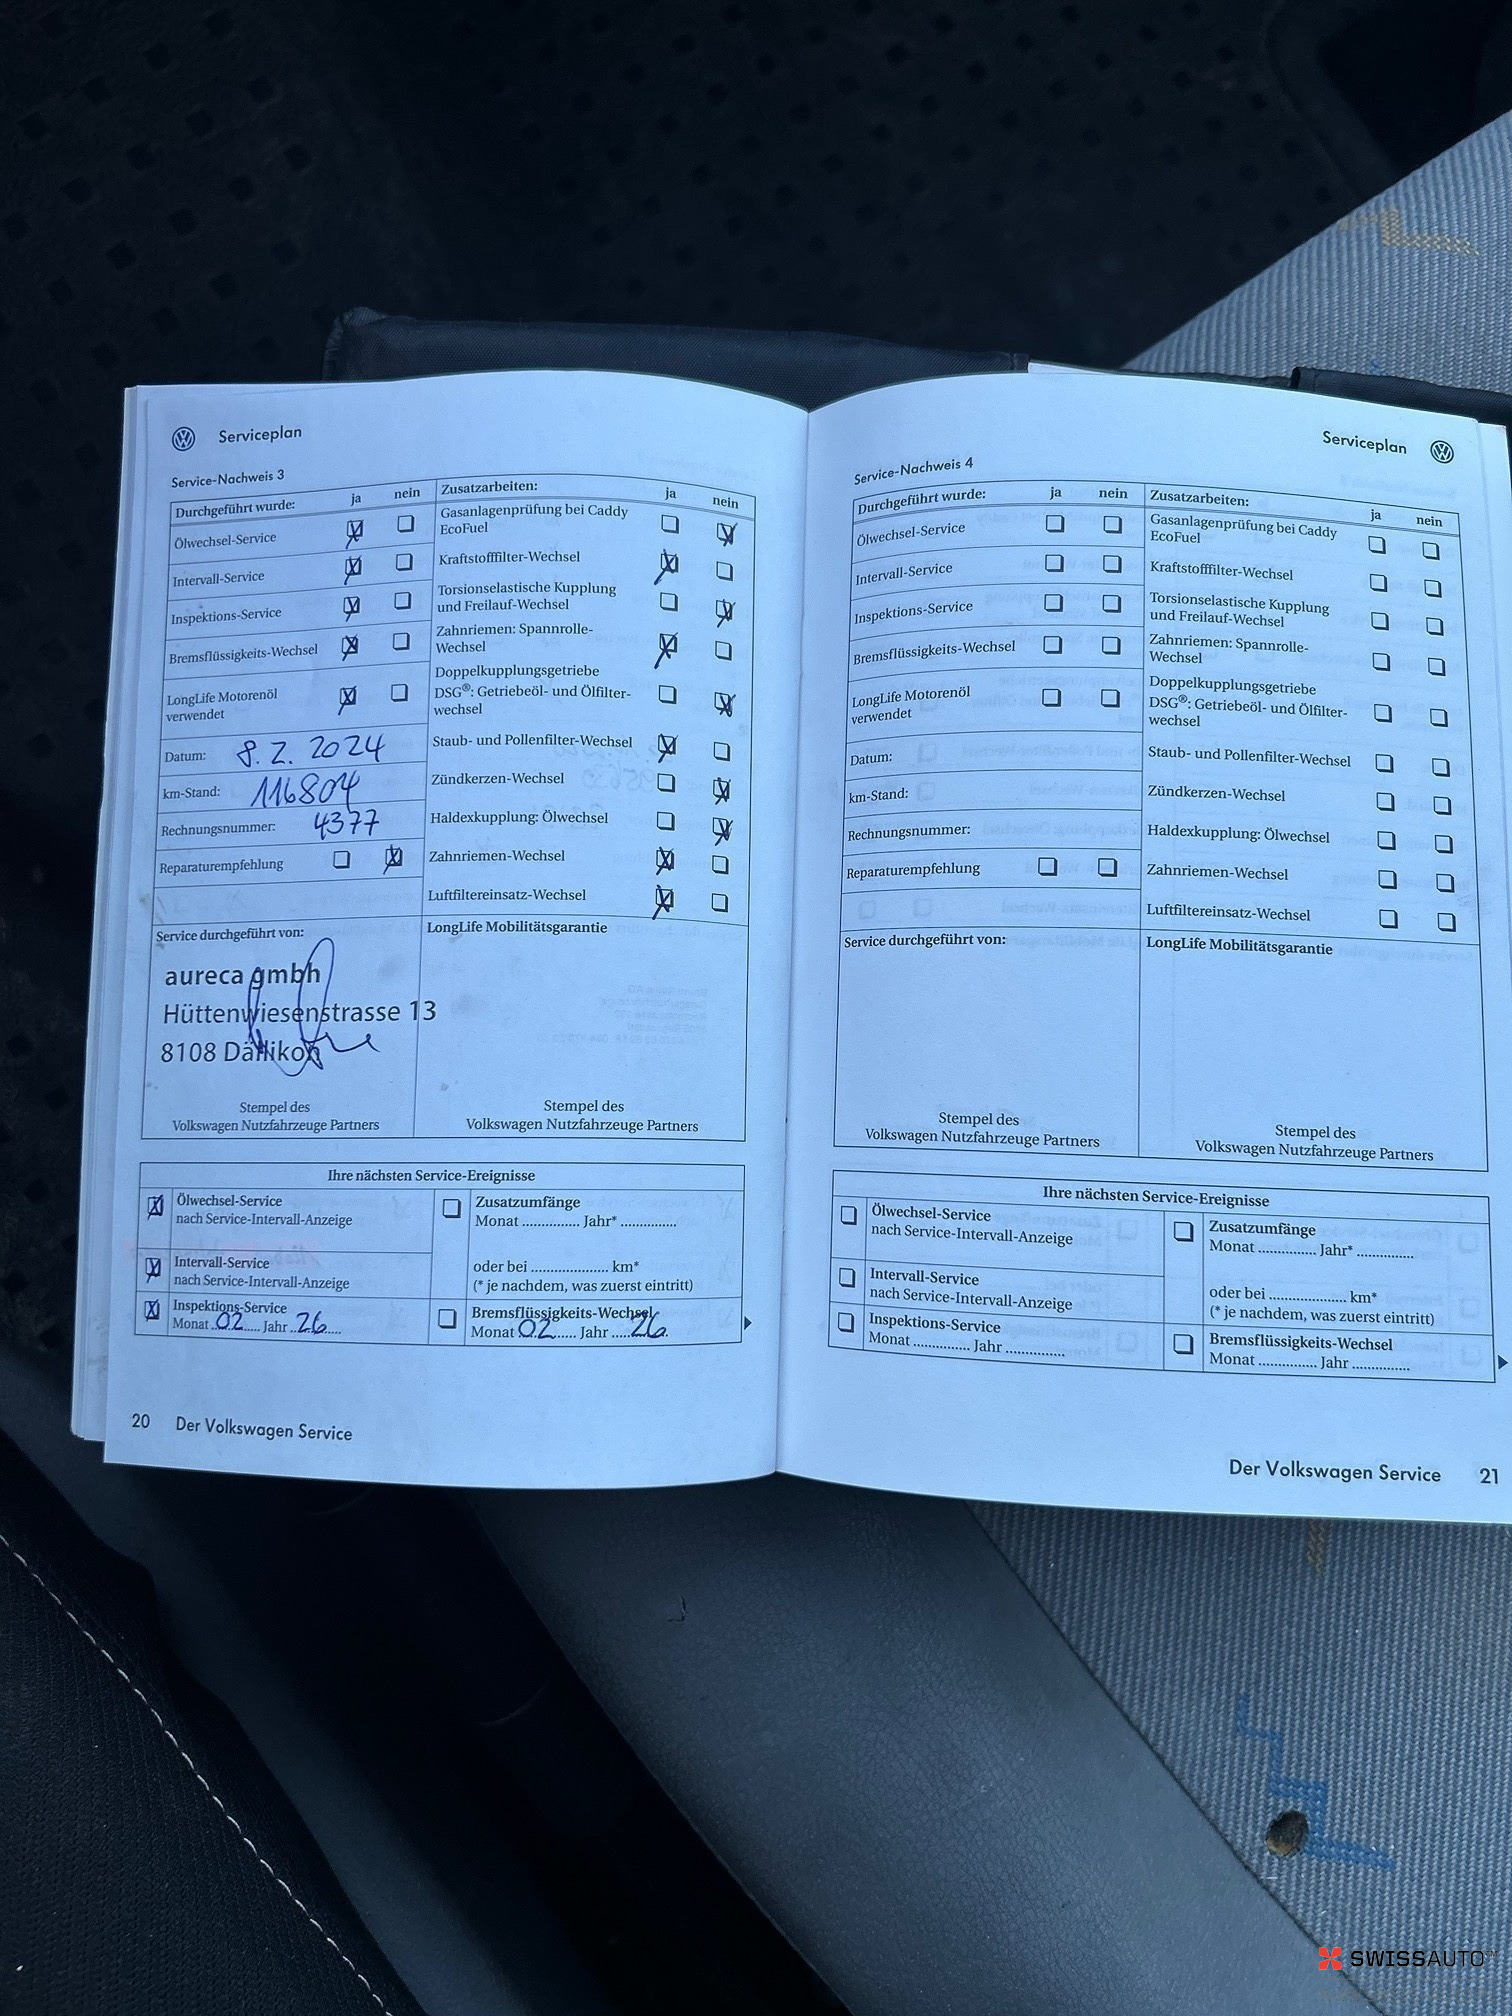 Serviceplan
Service-Nachweis 3
Durchgeführt wurde: ja nein
Ölwechsel-Service
Intervall-Service
Inspektions-Service
Bremsflüssigkeits-Wechsel
LongLife Motorenöl
verwendet
Datum: 8.2.2024
km-Stand: 116804
Rechnungsnummer: 4377
Reparaturempfehlung
Zusatzarbeiten: ja nein
Gasanlagenprüfung bei Caddy
EcoFuel
Kraftstofffilter-Wechsel
Torsionselastische Kupplung
und Freilauf-Wechsel
Zahnriemen: Spannrolle-
Wechsel
Doppelkupplungsgetriebe
DSG®: Getriebeöl- und Ölfilter-
wechsel
Staub- und Pollenfilter-Wechsel
Zündkerzen-Wechsel
Haldexkupplung: Ölwechsel
Zahnriemen-Wechsel
Luftfiltereinsatz-Wechsel
Service durchgeführt von:
aureca gmbh
Hüttenwiesenstrasse 13
8108 Dällikon
Stempel des
Volkswagen Nutzfahrzeuge Partners
LongLife Mobilitätsgarantie
Stempel des
Volkswagen Nutzfahrzeuge Partners
Ihre nächsten Service-Ereignisse
Ölwechsel-Service
nach Service-Intervall-Anzeige
Intervall-Service
nach Service-Intervall-Anzeige
Inspektions-Service
Monat 02 Jahr 26
Zusatzumfänge
Monat ............... Jahr* ...............
oder bei .................... km*
(* je nachdem, was zuerst eintritt)
Bremsflüssigkeits-Wechsel
Monat 02 Jahr 26
20 Der Volkswagen Service
Serviceplan
Service-Nachweis 4
Durchgeführt wurde: ja nein
Ölwechsel-Service
Intervall-Service
Inspektions-Service
Bremsflüssigkeits-Wechsel
LongLife Motorenöl
verwendet
Datum:
km-Stand:
Rechnungsnummer:
Reparaturempfehlung
Zusatzarbeiten: ja nein
Gasanlagenprüfung bei Caddy
EcoFuel
Kraftstofffilter-Wechsel
Torsionselastische Kupplung
und Freilauf-Wechsel
Zahnriemen: Spannrolle-
Wechsel
Doppelkupplungsgetriebe
DSG®: Getriebeöl- und Ölfilter-
wechsel
Staub- und Pollenfilter-Wechsel
Zündkerzen-Wechsel
Haldexkupplung: Ölwechsel
Zahnriemen-Wechsel
Luftfiltereinsatz-Wechsel
Service durchgeführt von:
Stempel des
Volkswagen Nutzfahrzeuge Partners
LongLife Mobilitätsgarantie
Stempel des
Volkswagen Nutzfahrzeuge Partners
Ihre nächsten Service-Ereignisse
Ölwechsel-Service
nach Service-Intervall-Anzeige
Intervall-Service
nach Service-Intervall-Anzeige
Inspektions-Service
Monat ............... Jahr ...............
Zusatzumfänge
Monat ............... Jahr* ...............
oder bei .................... km*
(* je nachdem, was zuerst eintritt)
Bremsflüssigkeits-Wechsel
Monat ............... Jahr ...............
Der Volkswagen Service 21
SWISSAUTO